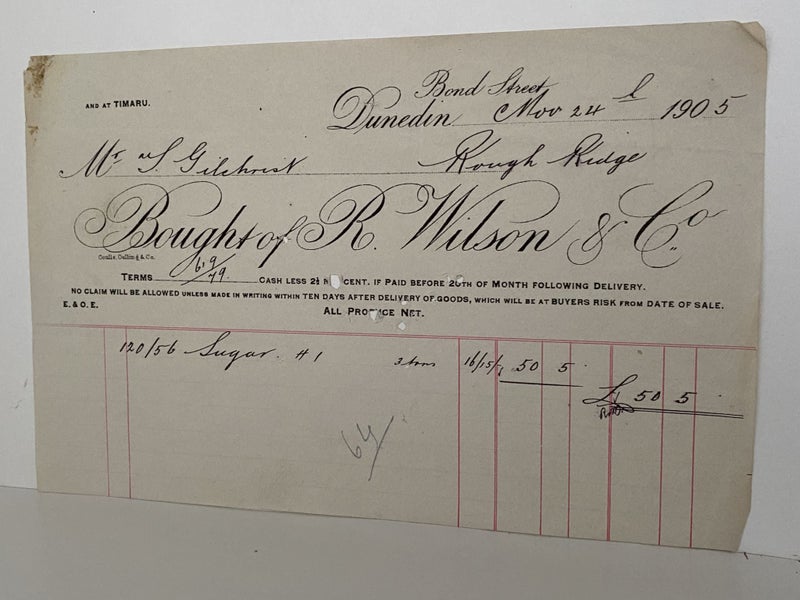 Bond Street
AND AT TIMARU.
Dunedin Nov 24th 1905
Mr S. Gilchrist Rough Ridge
Bought of R. Wilson & Co.
Coulls, Culling & Co.
TERMS CASH LESS 2½ CENT. IF PAID BEFORE 20TH OF MONTH FOLLOWING DELIVERY.
NO CLAIM WILL BE ALLOWED UNLESS MADE IN WRITING WITHIN TEN DAYS AFTER DELIVERY OF GOODS, WHICH WILL BE AT BUYERS RISK FROM DATE OF SALE.
E. & O. E. ALL PRODUCE NET.
120/56 Sugar #1 3 tons 16/15/ 50 5
£ 50 5
64